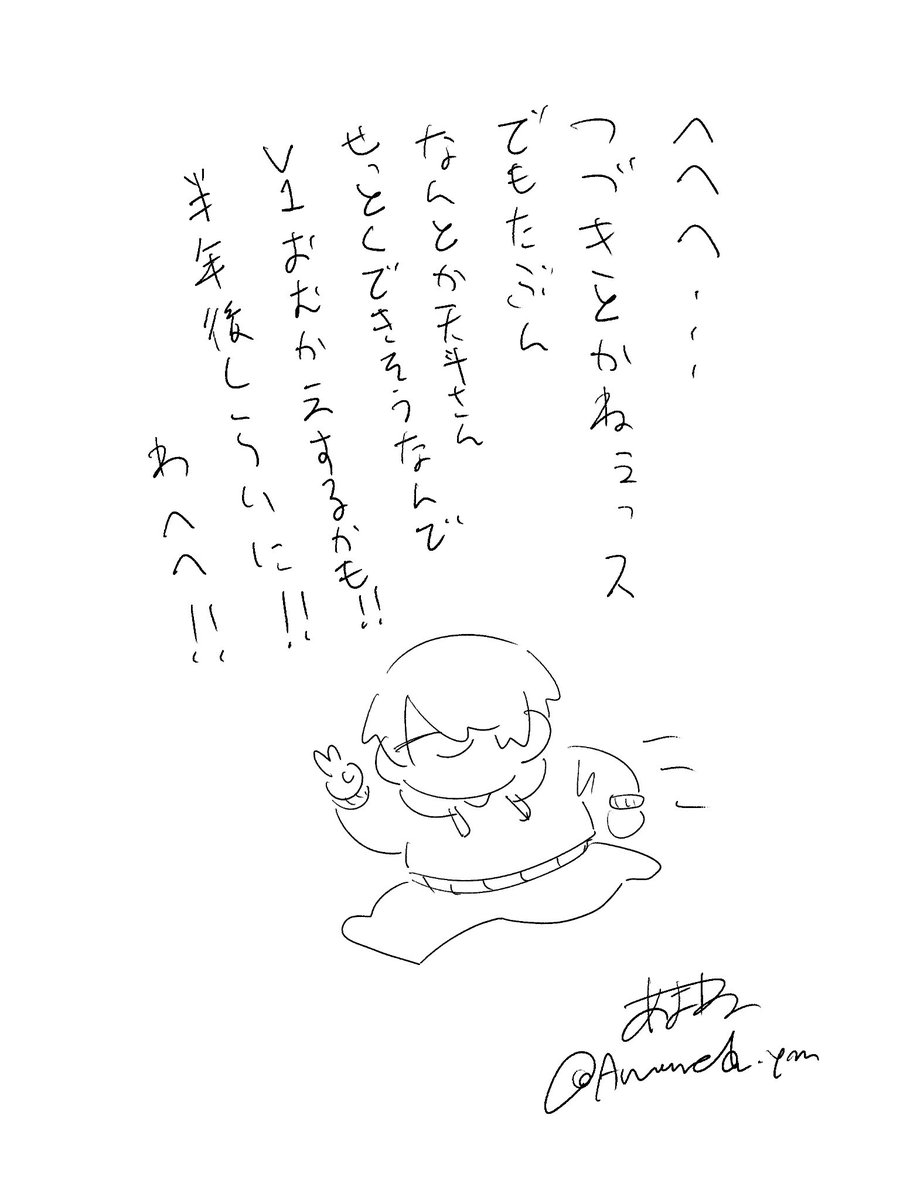 へへへ...
つづきとかねぇっス
でもたぶん
なんとか天斗さん
せっとくできそうなんで
V1おむかえするかも!!
半年後しくらいに!!
わへへ!!
あまね